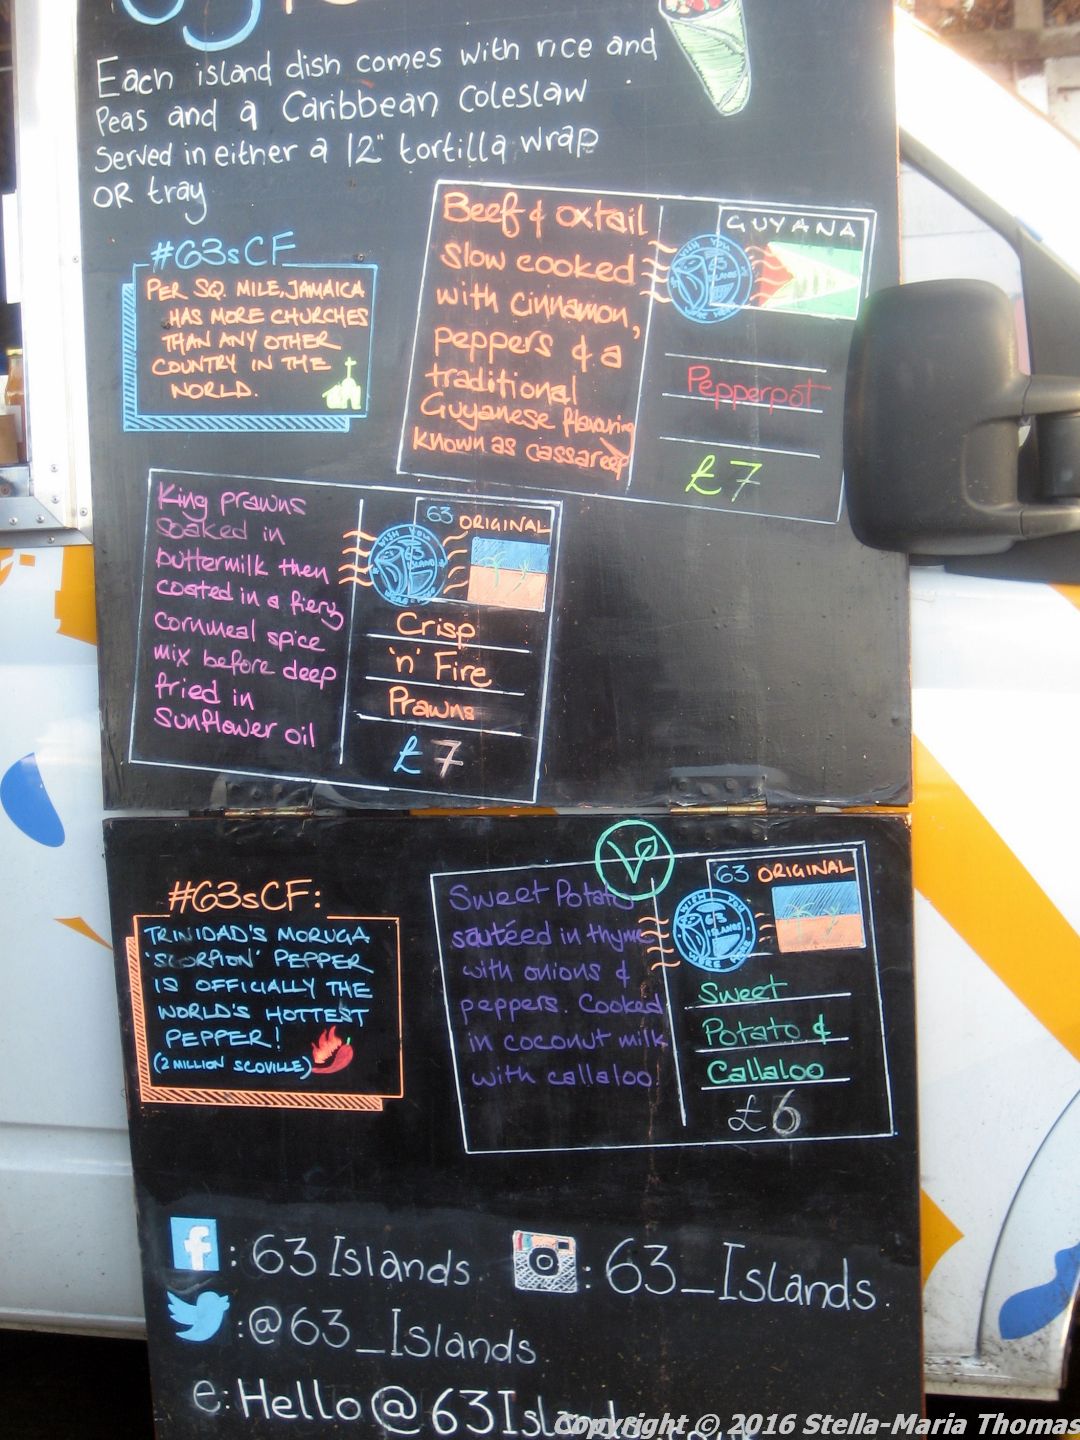 63
Each island dish comes with rice and
Peas and a Caribbean Coleslaw
Served in either a 12" tortilla wrap
OR tray
#63sCF
PER SQ. MILE, JAMAICA
HAS MORE CHURCHES
THAN ANY OTHER
COUNTRY IN THE
WORLD.
Beef & oxtail
slow cooked
with cinnamon,
peppers & a
traditional
Guyanese flavouring
known as cassareep
GUYANA
WISH YOU
63
ISLANDS
WERE HERE
Pepperpot
£7
King prawns
soaked in
buttermilk then
coated in a fiery
cornmeal spice
mix before deep
fried in
Sunflower oil
63 ORIGINAL
WISH YOU
63
ISLANDS
WERE HERE
Crisp
'n' Fire
Prawns
£7
#63sCF:
TRINIDAD'S MORUGA
'SCORPION' PEPPER
IS OFFICIALLY THE
WORLD'S HOTTEST
PEPPER!
(2 MILLION SCOVILLE)
V
Sweet Potato
sautéed in thyme
with onions &
peppers. Cooked
in coconut milk
with callaloo.
63 ORIGINAL
WISH YOU
63
ISLANDS
WERE HERE
Sweet
Potato &
Callaloo
£6
f : 63 Islands.
: 63_Islands.
: @63_Islands.
e: Hello@63Islands
Copyright © 2016 Stella-Maria Thomas